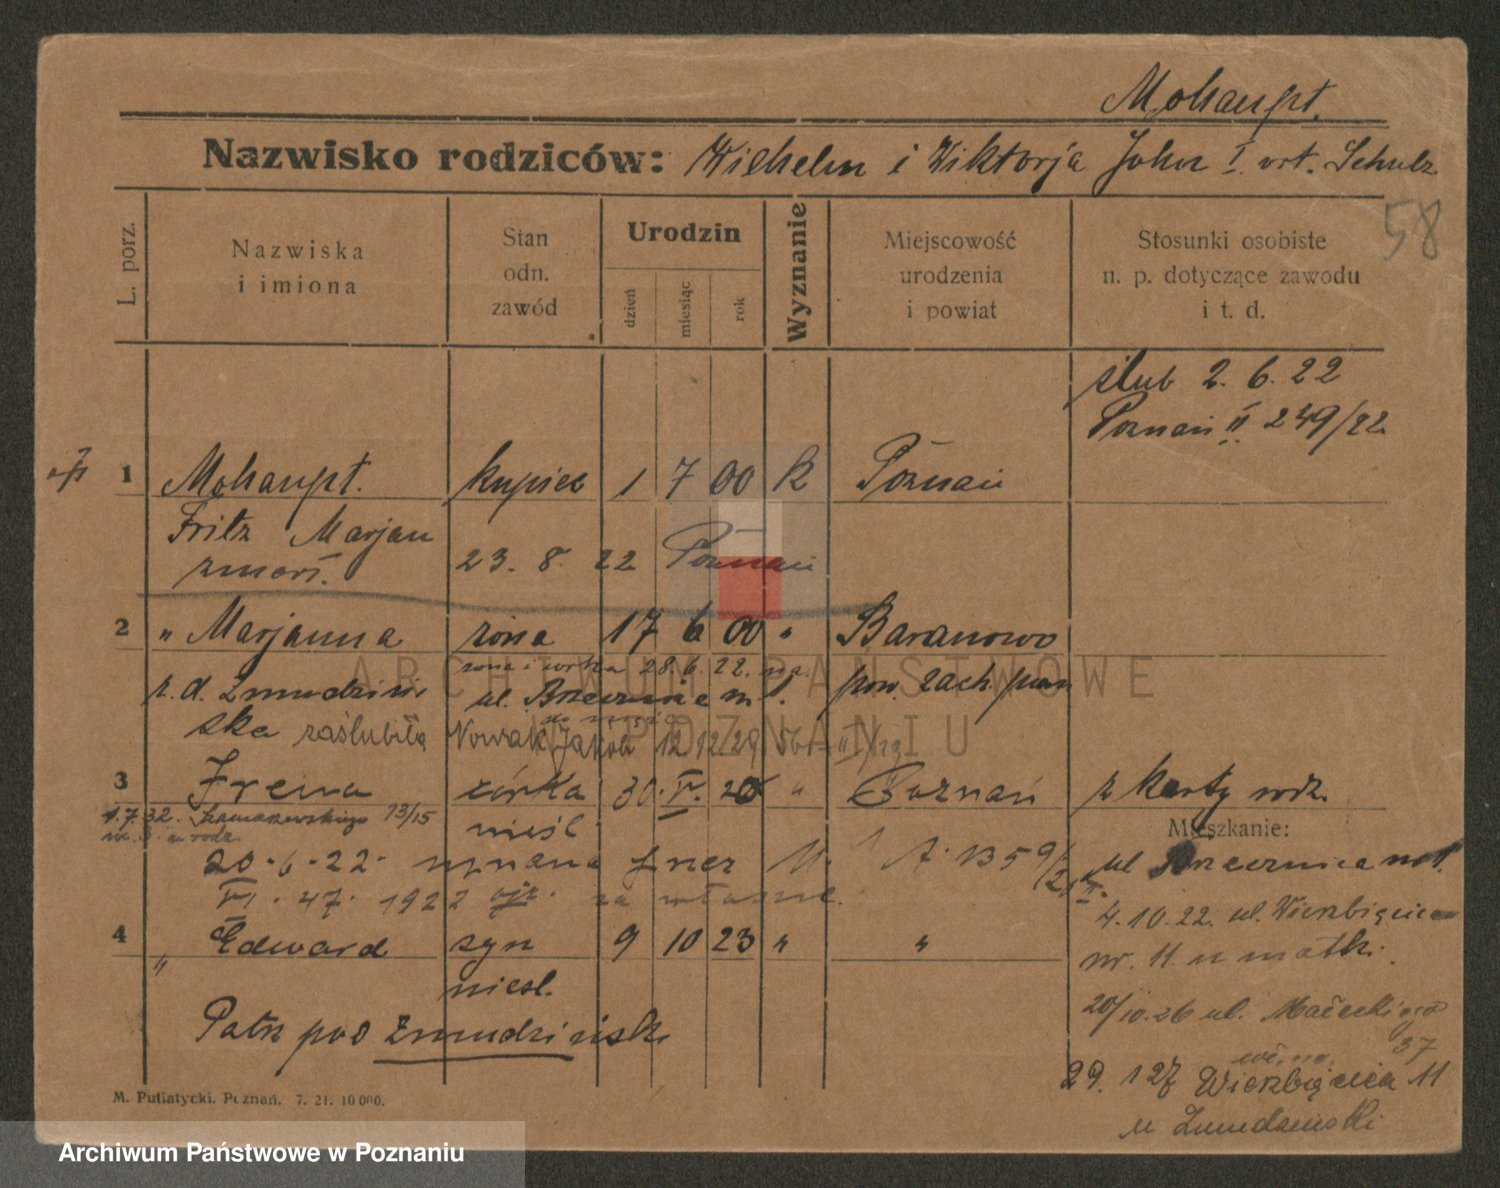 Mohaupt.
Nazwisko rodziców: Wilhelm i Wiktorja John I. vrt. Schulz
58
L. porz.
Nazwiska
i imiona
Stan
odn.
zawód
Urodzin
dzień
miesiąc
rok
Wyznanie
Miejscowość
urodzenia
i powiat
Stosunki osobiste
n. p. dotyczące zawodu
i t. d.
ślub 2. 6. 22
Poznań II 249/22
1 Mohaupt. kupiec 1 7 00 k Poznań
Fritz Marjan
zmarł. 23. 8. 22 Poznań
2 " Marjanna żona 17 6 00 " Baranowo
żona i córka 28. 6. 22. na
z. d. Żmudziń ul. Brzeźnica nr. 1. pow. zach. pozn
ska zaślubiła Nowak Jakób 12.12.29
3 Irena córka 30. V. 20 " Poznań z karty rodz.
1.7.32. 13/15
nieśl
Mieszkanie:
20. 6. 22. uznana
VI. 47. 1922 ojc. za własne.
nr 1.
4.10.22. ul. Wierzbięcice
4 " Edward syn 9 10 23 " "
nr. 11. u matki.
nieśl.
20/10.26 ul. Małeckiego
37
Patrz pod Żmudziński
29. 1 27 Wierzbięcice 11
u Żmudziński
M. Putiatycki. Poznań. 7. 21. 10 000.
ARCHIWUM PAŃSTWOWE
W POZNANIU
Archiwum Państwowe w Poznaniu